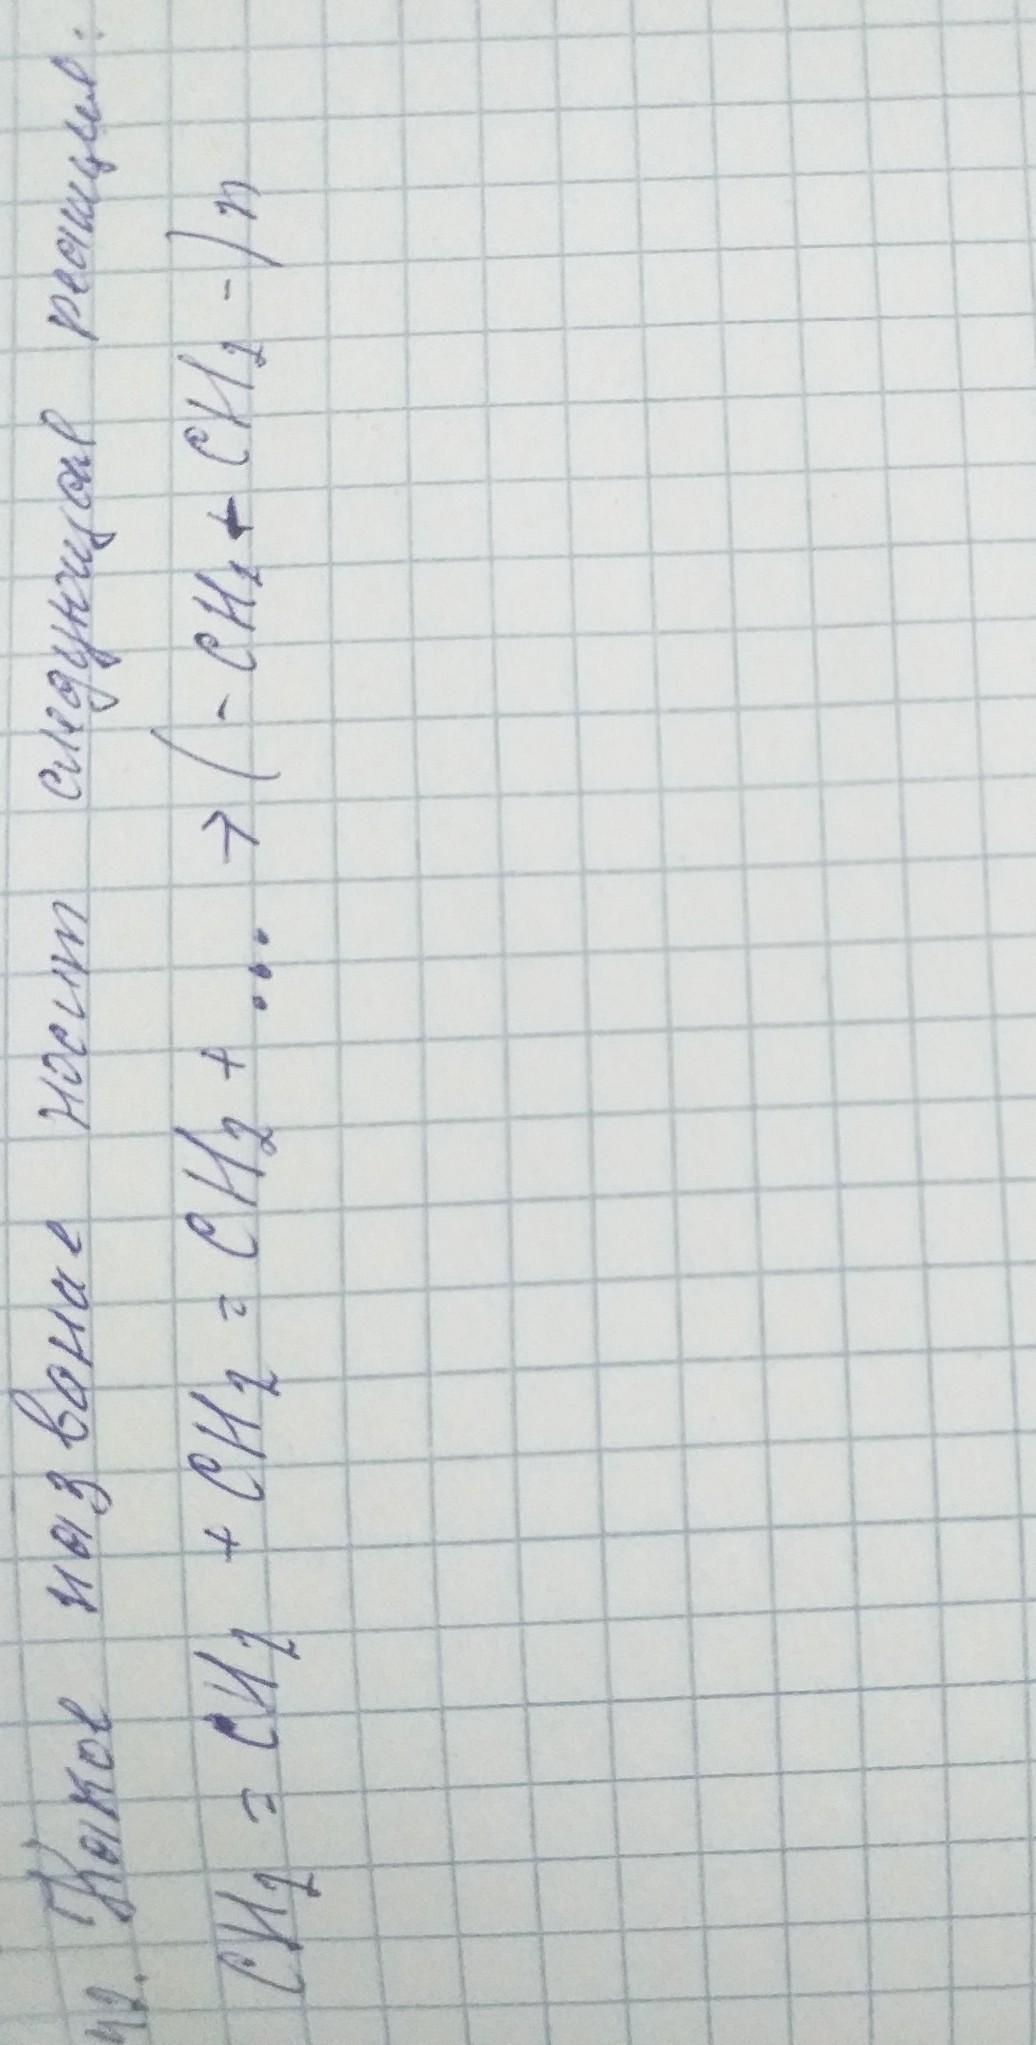 42. Какое название носит следующая реакция:
CH2 = CH2 + CH2 = CH2 + ... → (- CH2 + CH2 -) n